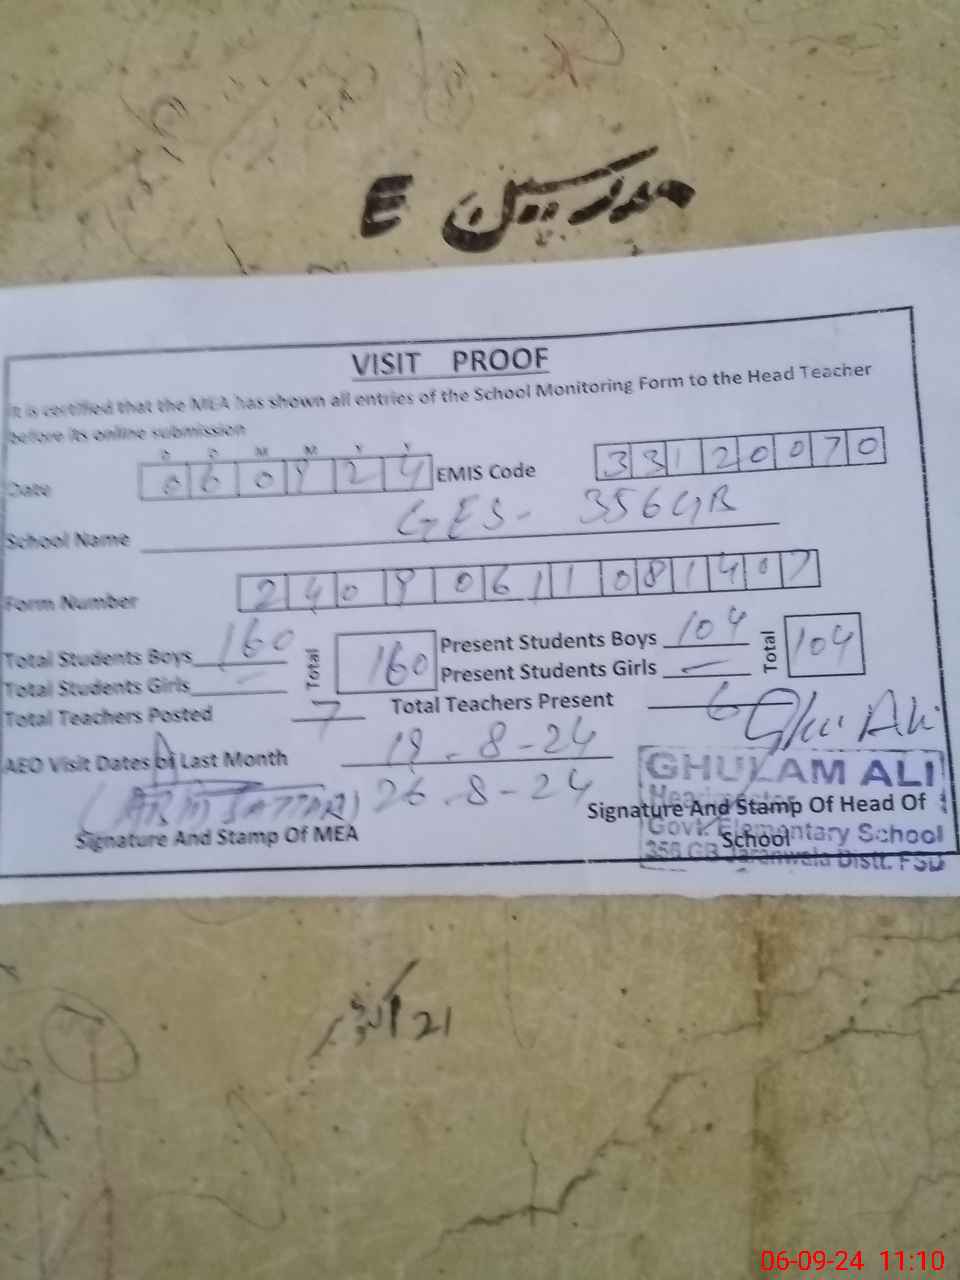 مدرسین E
VISIT PROOF
It is certified that the MEA has shown all entries of the School Monitoring Form to the Head Teacher
before its online submission
D D M M Y Y
Date 060924 EMIS Code 33120070
School Name GES- 356GB
Form Number 24090611081407
Total Students Boys 160 Total 160 Present Students Boys 104 Total 104
Total Students Girls – Present Students Girls –
Total Teachers Posted 7 Total Teachers Present 6
AEO Visit Dates of Last Month 19-8-24
26-8-24
Signature And Stamp Of MEA
Signature And Stamp Of Head Of School
GHULAM ALI
Govt. Elementary School
356 GB Jaranwala Distt. FSD
21
06-09-24 11:10